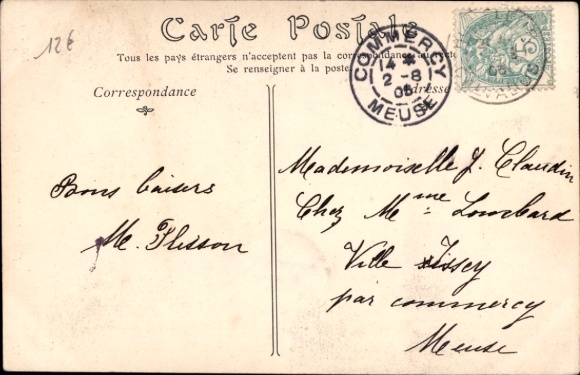 12€
Carte Postale
Tous les pays étrangers n'acceptent pas la correspondance au
Se renseigner à la poste
Correspondance
Adresse
COMMERCY
14 *
2 - 8
05
MEUSE
5
Bons baisers
M. Flisson
Mademoiselle J. Claudin
Chez Mme Lombard
Ville Issey
par commercy
Meuse